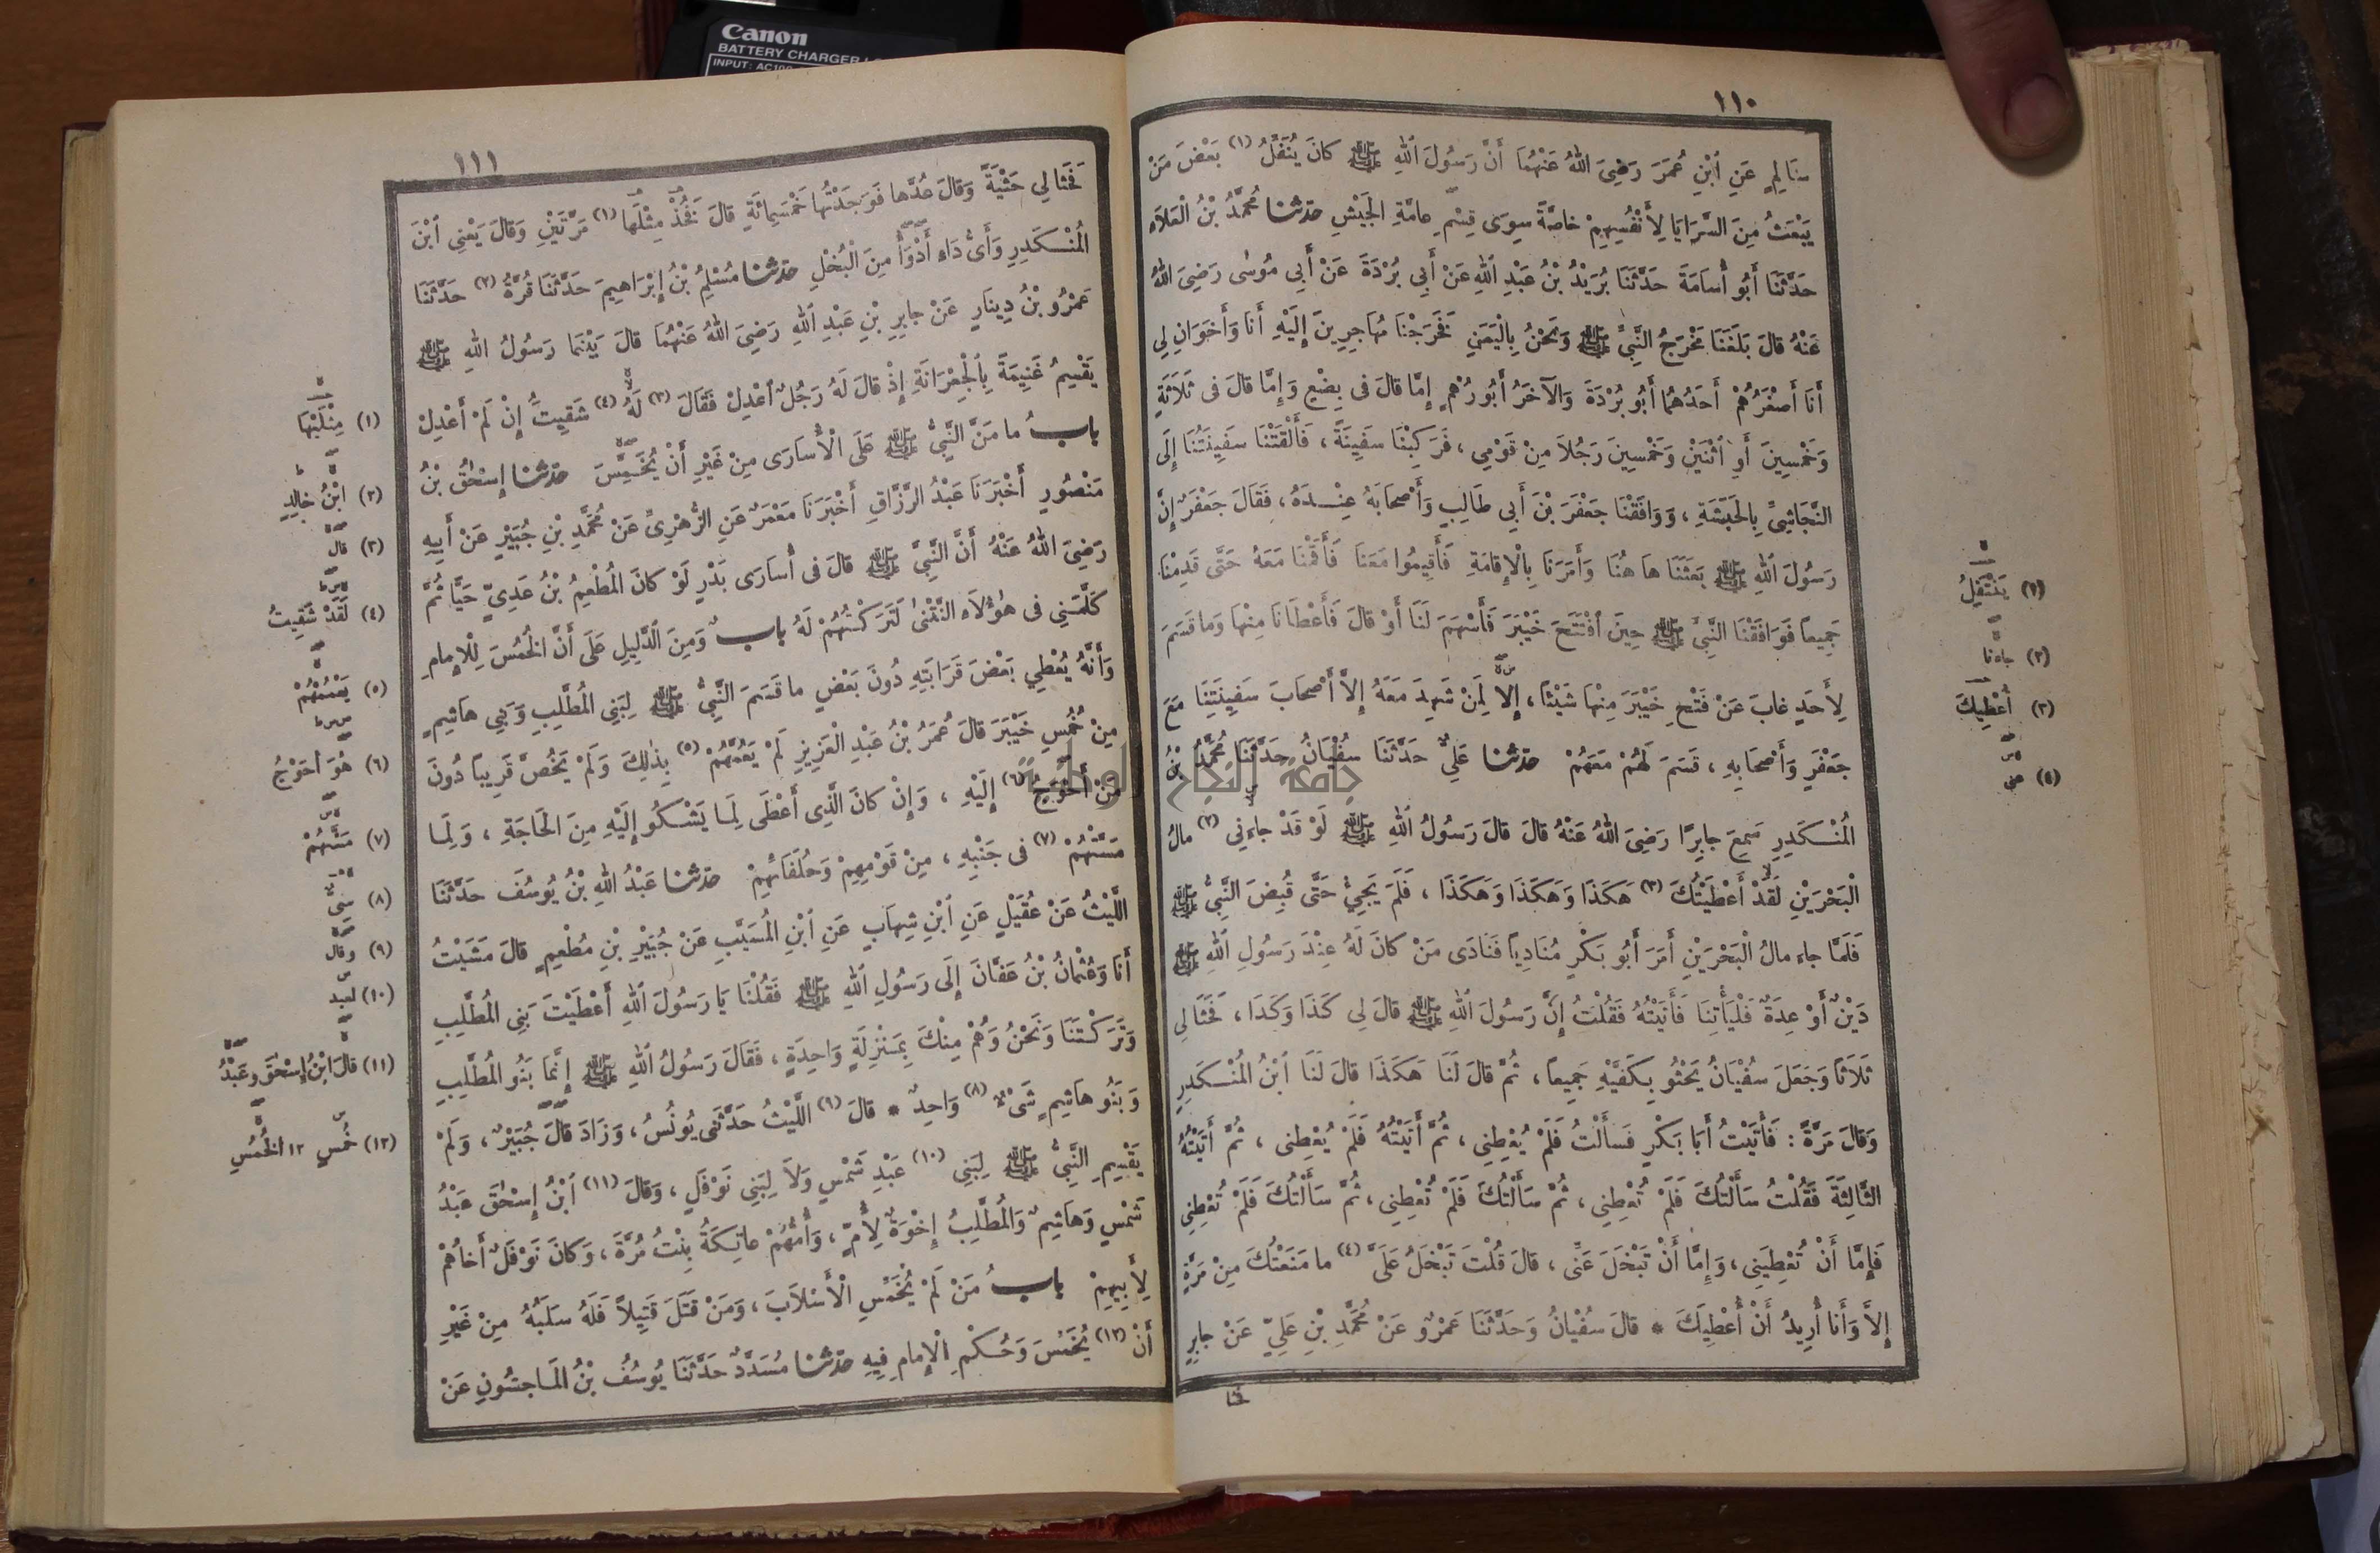 Canon
BATTERY CHARGER
INPUT: AC100
١١٠
سَالِمٍ عَنِ ابْنِ عُمَرَ رَضِيَ اللهُ عَنْهُمَا أَنَّ رَسُولَ اللهِ ﷺ كانَ يُنَفِّلُ (١) بَعْضَ مَنْ
يَبْعَثُ مِنَ السَّرَايَا لِأَنْفُسِهِمْ خاصَّةً سِوَى قِسْمِ عامَّةِ الجَيْشِ حدثنا مُحَمَّدُ بْنُ الْعَلَاءِ
حَدَّثَنَا أَبُو أُسَامَةَ حَدَّثَنَا بُرَيْدُ بْنُ عَبْدِ اللهِ عَنْ أَبِي بُرْدَةَ عَنْ أَبِي مُوسَى رَضِيَ اللهُ
عَنْهُ قالَ بَلَغَنَا مَخْرَجُ النَّبِيِّ ﷺ وَنَحْنُ بِالْيَمَنِ نَفَرَجْنَا مُهَاجِرِينَ إِلَيْهِ أَنَا وَأَخَوَانِ لِي
أَنَا أَصْغَرُهُمْ أَحَدُهُمَا أَبُو بُرْدَةَ وَالآخَرُ أَبُو رُهْمٍ إِمَّا قالَ فى بِضْعٍ وَإِمَّا قالَ فى ثَلَاثَةٍ
وَخَمْسِينَ أَوِ اثْنَيْنِ وَخَمْسِينَ رَجُلاً مِنْ قَوْمِي ، فَرَكِبْنَا سَفِينَةً ، فَأَلْقَتْنَا سَفِينَتُنَا إِلَى
النَّجَاشِيِّ بِالحَبَشَةِ ، وَوَافَقْنَا جَعْفَرَ بْنَ أَبِي طَالِبٍ وَأَصْحَابَهُ عِنْدَهُ ، فَقَالَ جَعْفَرٌ إِنَّ
رَسُولَ اللهِ ﷺ بَعَثَنَا هَاهُنَا وَأَمَرَنَا بِالْإِقامَةِ فَأَقِيمُوا مَعَنَا فَأَقَمْنَا مَعَهُ حَتَّى قَدِمْنَا
جَمِيعاً فَوَافَقْنَا النَّبِيَّ ﷺ حِينَ افْتَتَحَ خَيْبَرَ فَأَسْهَمَ لَنَا أَوْ قالَ فَأَعْطَانَا مِنْهَا وَما قَسَمَ
لِأَحَدٍ غابَ عَنْ فَتْحِ خَيْبَرَ مِنْهَا شَيْئًا ، إِلاَّ لِمَنْ شَهِدَ مَعَهُ إِلاَّ أَصْحَابَ سَفِينَتِنَا مَعَ
جَعْفَرٍ وَأَصْحَابِهِ ، قَسَمَ لَهُمْ مَعَهُمْ حدثنا عَلِيٌّ حَدَّثَنَا سُفْيَانُ حَدَّثَنَا مُحَمَّدُ بْنُ
الْمُنْكَدِرِ سَمِعَ جابِرًا رَضِيَ اللهُ عَنْهُ قالَ قالَ رَسُولُ اللهِ ﷺ لَوْ قَدْ جاءَنِي (٢) مالُ
الْبَحْرَيْنِ لَقَدْ أَعْطَيْتُكَ (٣) هَكَذَا وَهَكَذَا وَهَكَذَا ، فَلَمْ يَجِئْ حَتَّى قُبِضَ النَّبِيُّ ﷺ
فَلَمَّا جاءَ مالُ الْبَحْرَيْنِ أَمَرَ أَبُو بَكْرٍ مُنَادِياً فَنَادَى مَنْ كانَ لَهُ عِنْدَ رَسُولِ اللهِ ﷺ
دَيْنٌ أَوْ عِدَةٌ فَلْيَأْتِنَا فَأَتَيْتُهُ فَقُلْتُ إِنَّ رَسُولَ اللهِ ﷺ قالَ لِي كَذَا وَكَذَا ، فَحَثَا لِي
ثَلَاثًا وَجَعَلَ سُفْيَانُ يَحْثُو بِكَفَّيْهِ جَمِيعاً ، ثُمَّ قالَ لَنَا هَكَذَا قالَ لَنَا ابْنُ الْمُنْكَدِرِ
وَقالَ مَرَّةً : فَأَتَيْتُ أَبَا بَكْرٍ فَسَأَلْتُ فَلَمْ يُعْطِنِي ، ثُمَّ أَتَيْتُهُ فَلَمْ يُعْطِنِى ، ثُمَّ أَتَيْتُهُ
الثَّالِثَةَ فَقُلْتُ سَأَلْتُكَ فَلَمْ تُعْطِنِي ، ثُمَّ سَأَلْتُكَ فَلَمْ تُعْطِنِي ، ثُمَّ سَأَلْتُكَ فَلَمْ تُعْطِنِي
فَإِمَّا أَنْ تُعْطِيَنِي ، وَإِمَّا أَنْ تَبْخَلَ عَنِّى ، قالَ قُلْتَ تَبْخَلُ عَلَىَّ (٤) ما مَنَعْتُكَ مِنْ مَرَّةٍ
إِلاَّ وَأَنَا أُرِيدُ أَنْ أُعْطِيَكَ * قالَ سُفْيَانُ وَحَدَّثَنَا عَمْرٌو عَنْ مُحَمَّدِ بْنِ عَلِيٍّ عَنْ جابِرٍ
(١) يَنْتَفِلُ
(٢) جاءنا
(٣) أُعْطِيكَ
(٤) عنى
١١١
فَحَثَا لِي حَثْيَةً وَقالَ عُدَّها فَوَجَدْتُها خَمْسَمِائَةٍ قالَ فَخُذْ مِثْلَهَا (١) مَرَّتَيْنِ وَقالَ يَعْنِى ابْنَ
الْمُنْكَدِرِ وَأَىُّ دَاءٍ أَدْوَأُ مِنَ الْبُخْلِ حدثنا مُسْلِمُ بْنُ إِبْرَاهِيمَ حَدَّثَنَا قُرَّةُ (٢) حَدَّثَنَا
عَمْرُو بْنُ دِينَارٍ عَنْ جابِرِ بْنِ عَبْدِ اللهِ رَضِيَ اللهُ عَنْهُمَا قالَ بَيْنَمَا رَسُولُ اللهِ ﷺ
يَقْسِمُ غَنِيمَةً بِالْجِعْرَانَةِ إِذْ قالَ لَهُ رَجُلٌ اعْدِلْ فَقَالَ (٣) لَهُ (٤) شَقِيتُ إِنْ لَمْ أَعْدِلْ
بابُ ما مَنَّ النَّبِيُّ ﷺ عَلَى الْأُسَارَى مِنْ غَيْرِ أَنْ يُخَمِّسَ حدثنا إِسْحَقُ بْنُ
مَنْصُورٍ أَخْبَرَنَا عَبْدُ الرَّزَّاقِ أَخْبَرَنَا مَعْمَرٌ عَنِ الزُّهْرِىِّ عَنْ مُحَمَّدِ بْنِ جُبَيْرٍ عَنْ أَبِيهِ
رَضِيَ اللهُ عَنْهُ أَنَّ النَّبِيَّ ﷺ قالَ فى أُسَارَى بَدْرٍ لَوْ كانَ الْمُطْعِمُ بْنُ عَدِيٍّ حَيًّا ثُمَّ
كَلَّمَنِي فى هٰؤُلَاءِ النَّتْنَى لَتَرَكْتُهُمْ لَهُ بابٌ وَمِنَ الدَّلِيلِ عَلَى أَنَّ الْخُمُسَ لِلْإِمامِ
وَأَنَّهُ يُعْطِي بَعْضَ قَرَابَتِهِ دُونَ بَعْضٍ ما قَسَمَ النَّبِيُّ ﷺ لِبَنِي الْمُطَّلِبِ وَبَنِي هَاشِمٍ
مِنْ خُمُسِ خَيْبَرَ قالَ عُمَرُ بْنُ عَبْدِ الْعَزِيزِ لَمْ يَعُمَّهُمْ (٥) بِذٰلِكَ وَلَمْ يَخُصَّ قَرِيبًا دُونَ
مَنْ أَحْوَجُ (٦) إِلَيْهِ ، وَإِنْ كانَ الَّذِى أَعْطَى لِمَا يَشْكُو إِلَيْهِ مِنَ الحَاجَةِ ، وَلِمَا
مَسَّتْهُمْ (٧) فى جَنْبِهِ ، مِنْ قَوْمِهِمْ وَحُلَفَائِهِمْ حدثنا عَبْدُ اللهِ بْنُ يُوسُفَ حَدَّثَنَا
اللَّيْثُ عَنْ عُقَيْلٍ عَنِ ابْنِ شِهَابٍ عَنِ ابْنِ الْمُسَيَّبِ عَنْ جُبَيْرِ بْنِ مُطْعِمٍ قالَ مَشَيْتُ
أَنَا وَعُثْمَانُ بْنُ عَفَّانَ إِلَى رَسُولِ اللهِ ﷺ فَقُلْنَا يَا رَسُولَ اللهِ أَعْطَيْتَ بَنِي الْمُطَّلِبِ
وَتَرَكْتَنَا وَنَحْنُ وَهُمْ مِنْكَ بِمَنْزِلَةٍ وَاحِدَةٍ ، فَقَالَ رَسُولُ اللهِ ﷺ إِنَّمَا بَنُو الْمُطَّلِبِ
وَبَنُو هاشِمٍ شَىْءٌ (٨) وَاحِدٌ * قالَ (٩) اللَّيْثُ حَدَّثَنِى يُونُسُ ، وَزَادَ قالَ جُبَيْرٌ ، وَلَمْ
يَقْسِمِ النَّبِيُّ ﷺ لِبَنِى (١٠) عَبْدِ شَمْسٍ وَلاَ لِبَنِي نَوْفَلٍ ، وَقالَ (١١) ابْنُ إِسْحَقَ عَبْدُ
شَمْسٍ وَهَاشِمٌ وَالْمُطَّلِبُ إِخْوَةٌ لِأُمٍّ ، وَأُمُّهُمْ عاتِكَةُ بِنْتُ مُرَّةَ ، وَكانَ نَوْفَلٌ أَخاهُمْ
لِأَبِيهِمْ بابُ مَنْ لَمْ يُخَمِّسِ الْأَسْلَابَ ، وَمَنْ قَتَلَ قَتِيلاً فَلَهُ سَلَبُهُ مِنْ غَيْرِ
أَنْ (١٢) يُخَمِّسَ وَحُكْمِ الْإِمامِ فِيهِ حدثنا مُسَدَّدٌ حَدَّثَنَا يُوسُفُ بْنُ الْمَاجِشُونِ عَنْ
(١) مِثْلَيْهَا
(٢) ابْنُ خالِدٍ
(٣) قال
(٤) لَقَدْ شَقِيتُ
(٥) يَعْمُمْهُمْ
(٦) هُوَ أَحْوَجُ
(٧) مَسَّهُمْ
(٨) سِيٌّ
(٩) وقال
(١٠) لعبد
(١١) قالَ ابْنُ إِسْحَقَ وعَبْدُ
(١٢) خُمُسٍ ١٢ الْخُمُسِ
جامعة النجاح الوطنية